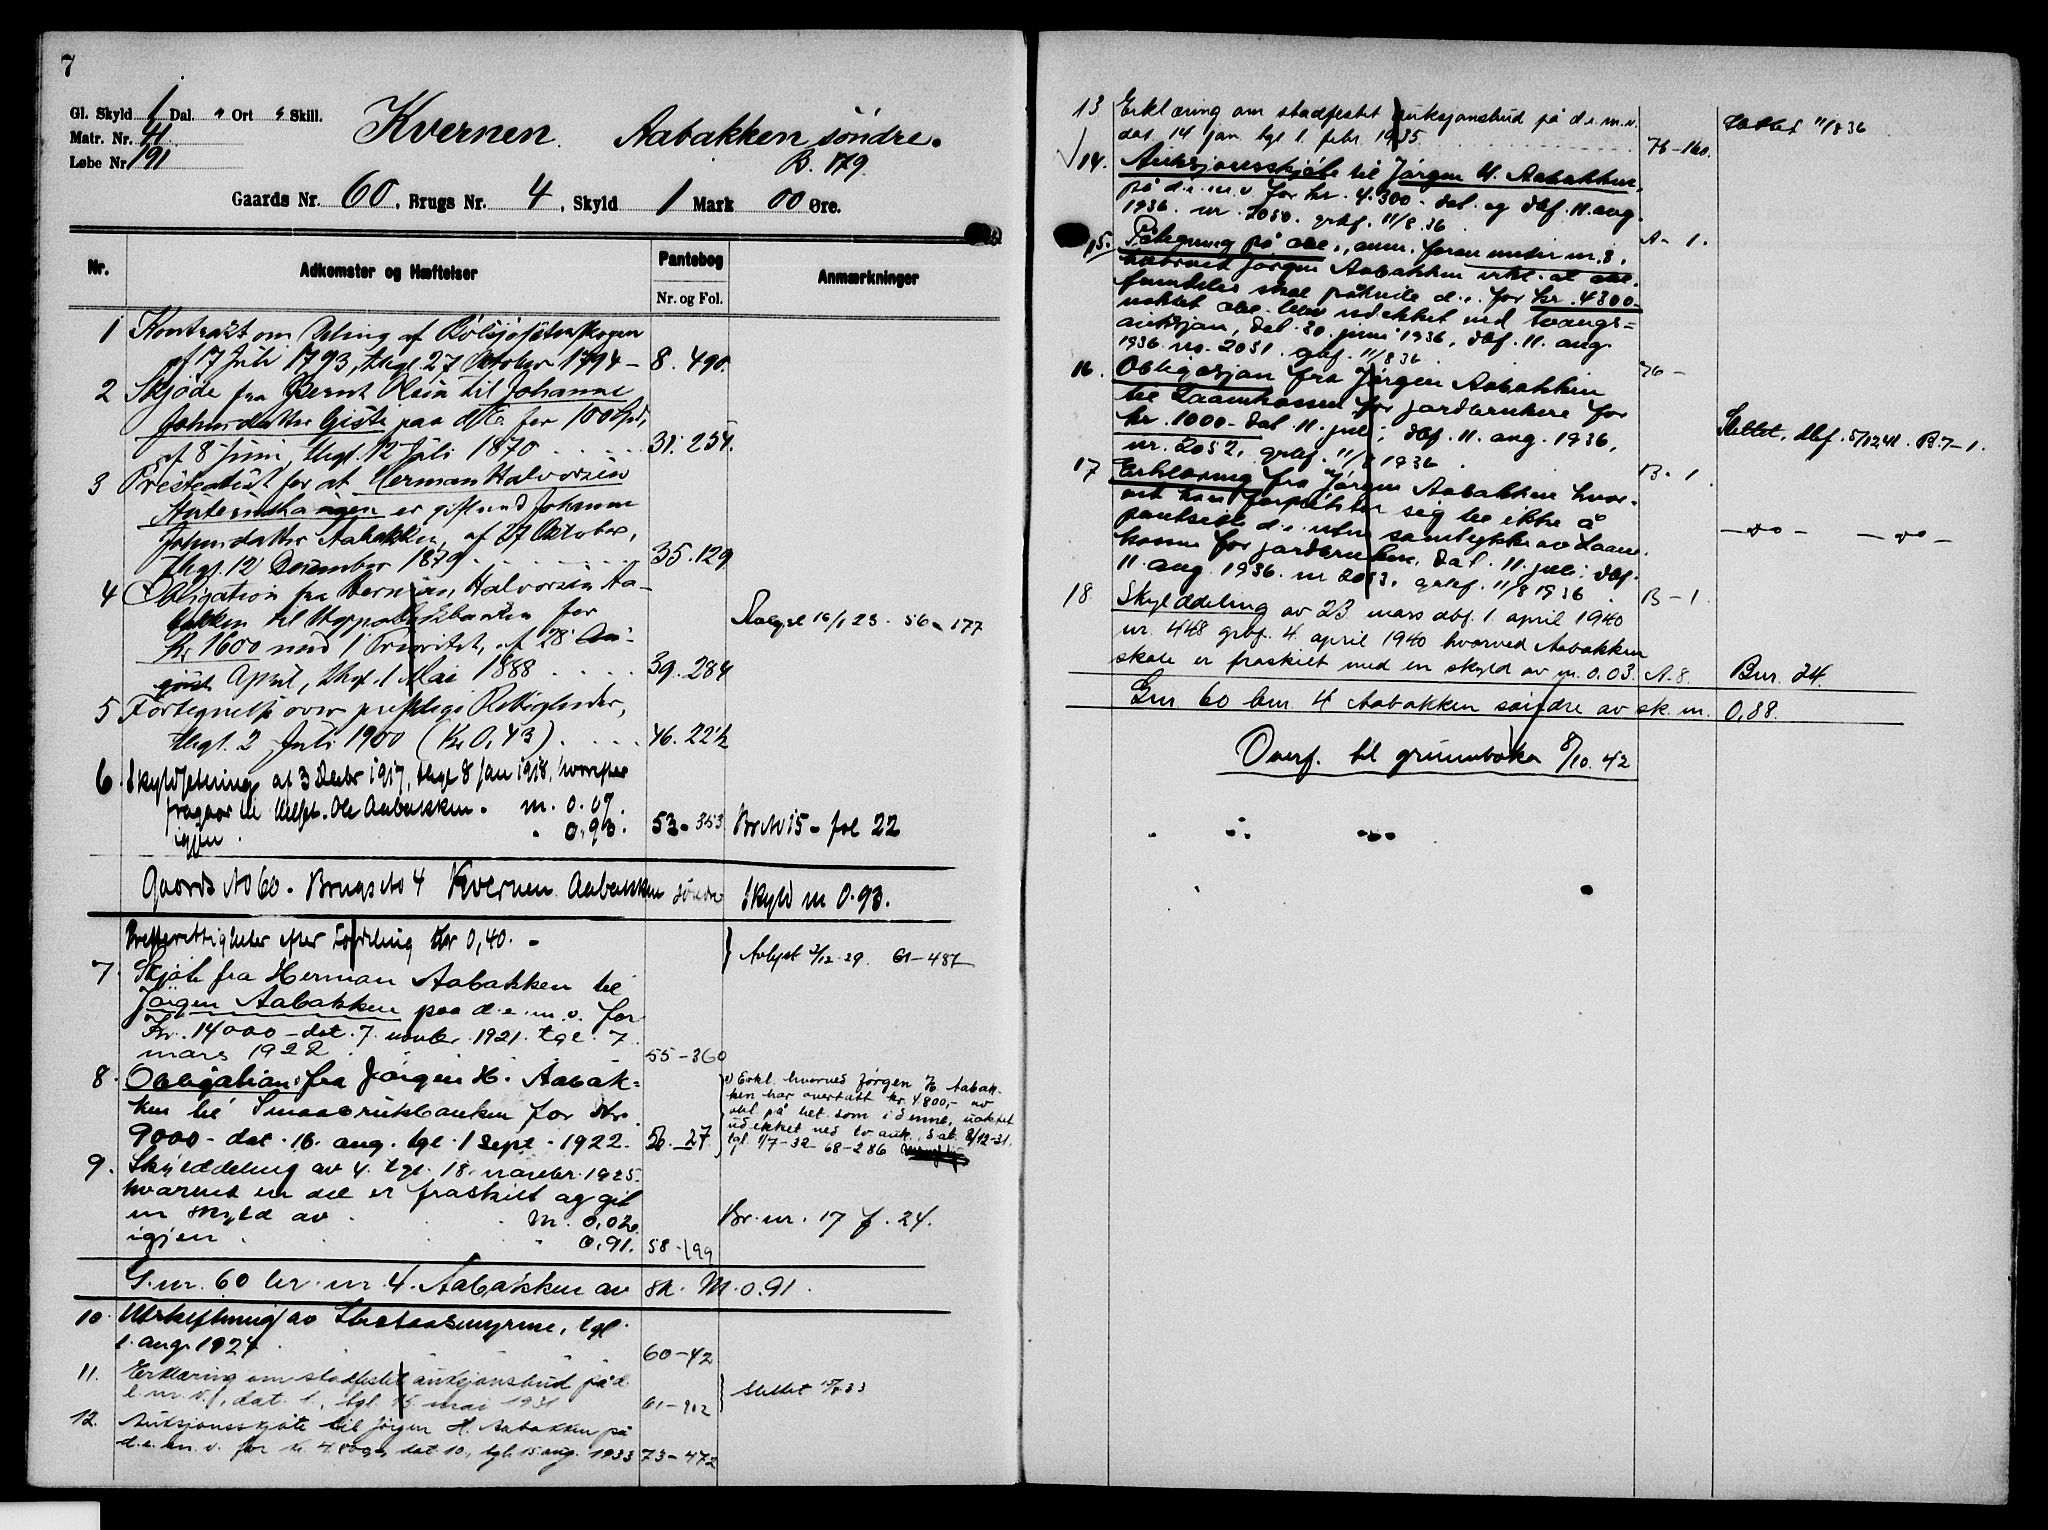 7
Gl. Skyld 1 Dal. " Ort " Skill.
Matr. Nr. 41
Løbe Nr. 191
Kvernen. Aabakken søndre.
B. 179.
Gaards Nr. 60, Brugs Nr. 4, Skyld 1 Mark 00 Øre.
Nr. Adkomster og Hæftelser Pantebog Anmærkninger
Nr. og Fol.
1 Kontrakt om Deling af
af 17 Juli 1793, thgl. 27 Oktober 1794 - 8. 490.
2 Skjøde fra Bernt Olsen til Johanne
Johnsdatter Gista paa d/E. for 100 Spd,
af 8 Juni, thgl. 12 Juli 1870 . . . . . 31. 254.
3 Presteattest for at Herman Halvorsen
er gift med Johanne
Johnsdatter Aabakken, af 27 Oktober,
thgl. 12 December 1879 . . . . . 35. 129
4 Obligation fra Herman Halvorsen Aa-
bakken til Hypothekbanken for
Kr 1600 med 1 Prioritet, af 28 Au-
gust April, thgl. 1 Mai 1888 . . . . 39. 284
Avlyst 16/1 23. 56 - 177
5 Fortegnelse over prestelige Rettigheder,
thgl. 2 Juli 1900 (Kr 0,43) . . . . 46. 22
6. Skyldsetning af 3 Decbr 1917, thgl 8 Jan 1918, hvorefter
fragaar til Ole Aabakken. m. 0.07.
igjen . " 0,93. 53 - 353 Br No 15 - fol 22
Gaards No 60. Brugs No 4 Kvernen. Aabakken søndre Skyld m 0.93.
Presterettigheter efter Fordeling kr 0,40. -
} Avlyst 3/12 29. 61 - 487
7. Skjøte fra Herman Aabakken til
Jørgen Aabakken paa d. e. m. v. for
Kr. 14000 - dat. 7. novbr. 1921. tgl. 7
mars 1922 . . 55 - 360
8. Obligation fra Jørgen H. Aabak=
ken til Smaabrukbanken for kr.
9000 - dat. 16. aug. tgl. 1 sept. 1922. 56. 27.
Erkl. hvorved Jørgen H. Aabak-
ken har overtatt kr. 4800,- av
obl på het. som i denne, uaktet
udekket ved tv. auk., dat. 8/12-31.
tgl. 1/7-32 68 - 286
9. Skylddeling av 4. tgl. 18. novbr. 1925.
hvorved en del er fraskilt og git
en skyld av . . M. 0,02.
igjen . . . " 0.91. 58 - 199
Br. nr. 17 f. 24.
G. nr. 60 br. nr. 4. Aabakken av sk. M. 0.91.
10. Utskiftning av tgl.
1. aug. 1927 . . . 60 - 42
11. Erklæring om stadfestet auksjonsbud på d.
e. m. v., dat. 1., tgl. 15 mai 1931 61 - 902
} Slettet 33
12. Auksjonsskjøte til Jørgen H. Aabakken på
d. e. m. v. for kr. dat. 10., tgl. 15 aug. 1933 73 - 472
13 Erklæring om stadfestet auksjonsbud på d. e. m. v.
dat. 14 jan. tgl. 1. febr. 1935 . . . . . 76 - 160.
Slettet 11/8 36
√14. Auksjonsskjøte til Jørgen H. Aabakken
på d. e. m. v for kr. 4.300 - dat. og dbf. 11. aug.
1936. nr. 2050. grbf. 11/8 36 . A - 1.
15. Påtegning på obl., anm. foran under nr. 8,
hvorved Jørgen Aabakken erkl. at obl.
fremdeles skal påhvile d. e. for kr. 4800-
uaktet obl. blev udekket ved tvangs=
auksjon, dat. 30. juni 1936, dbf. 11. aug.
1936. nr. 2051. grbf. 11/8 36 . 76 -
16. Obligasjon fra Jørgen Aabakken
til Laanekassen for jordbrukere for
kr. 1000 - dat. 11. juli, dbf. 11. aug. 1936,
nr. 2052, grbf. 11/8 1936 . B - 1.
Slettet, dbf. 5/12 41. B. 7 - 1.
17 Erklæring fra Jørgen Aabakken hvor-
ved han forplikter sig til ikke å
pantsette d. e. uten samtykke av Laane-
kassen for jordbrukere, dat. 11. juli, dbf.
11. aug. 1936. nr 2053. grbf. 11/8 1936 B - 1.
- " - - " -
18. Skylddeling av 23 mars dbf. 1. april 1940
nr. 448 grbf. 4. april 1940 hvorved Aabakken
skole er fraskilt med en skyld av m. 0.03. A. 8. Bnr. 24.
Gnr 60 bnr 4 Aabakken søndre av sk. m. 0,88.
Overf. til grunnboka 8/10. 42